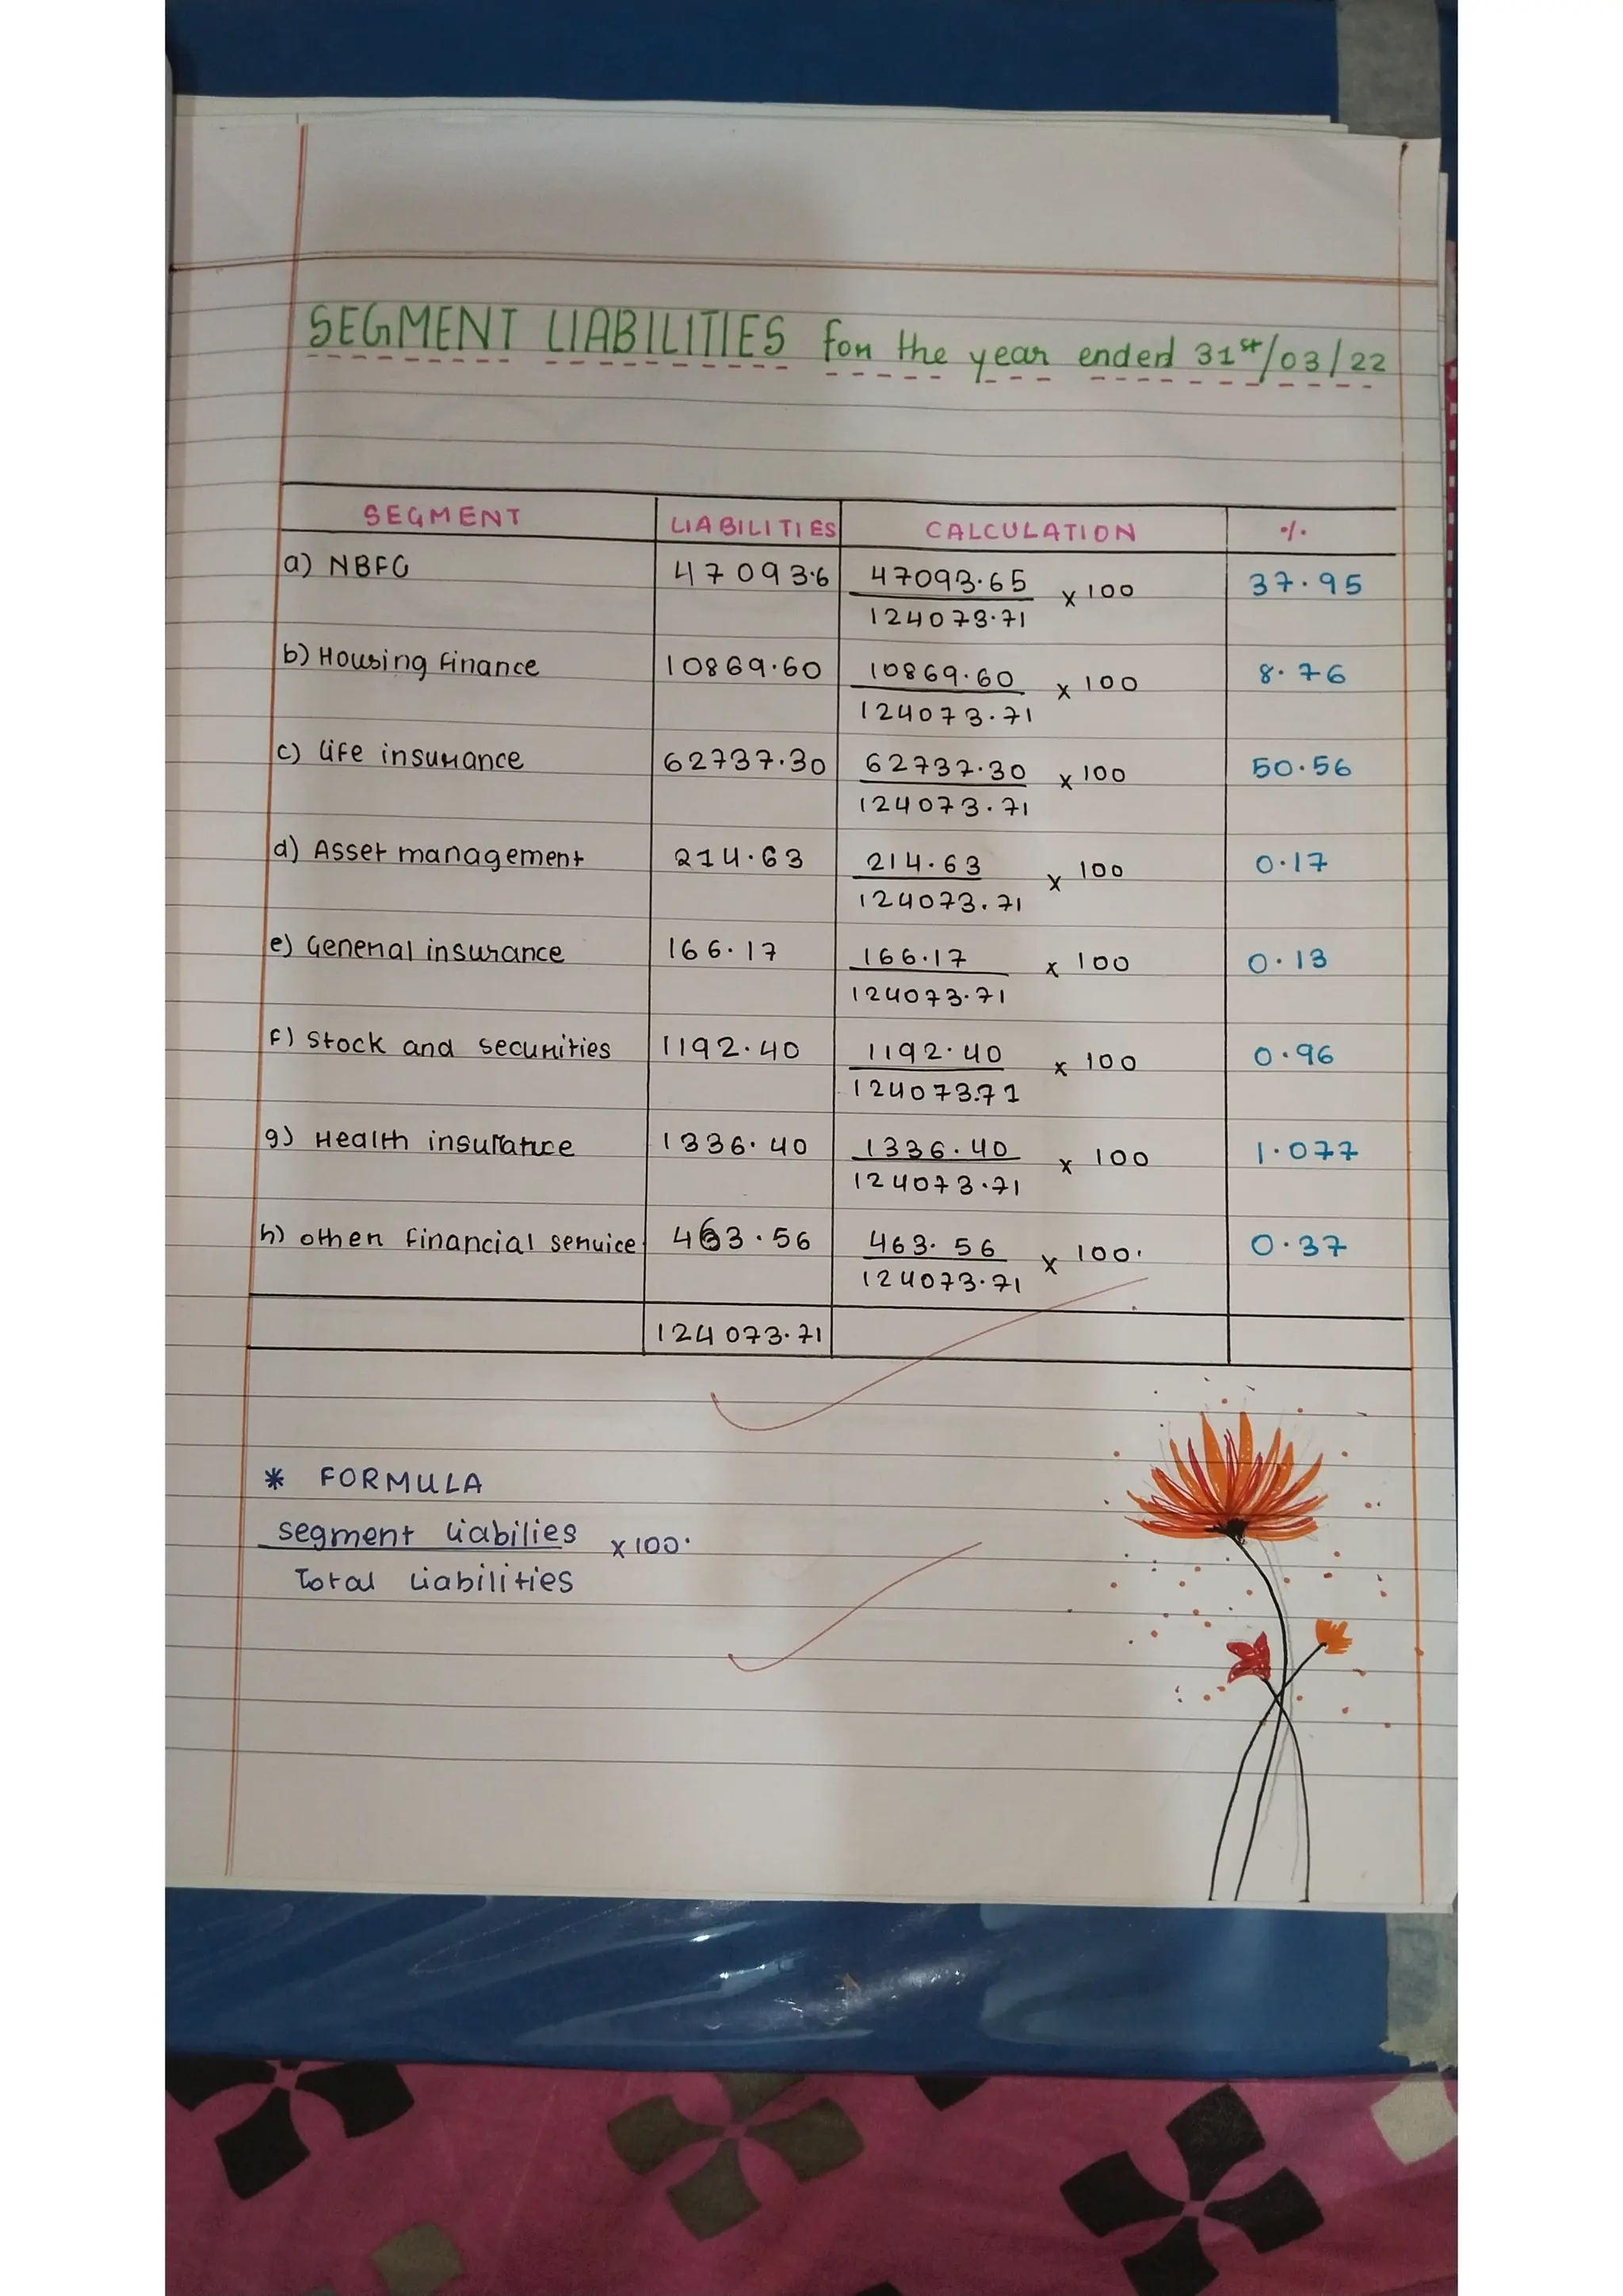 SEGMENT LIABILITIES for the year ended 31st/03/22
SEGMENT LIABILITIES CALCULATION %
a) NBFC 47093.6 47093.65 x 100 37.95
124073.71
b) Housing finance 10869.60 10869.60 x 100 8.76
124073.71
c) Life insurance 62737.30 62737.30 x 100 50.56
124073.71
d) Asset management 214.63 214.63 x 100 0.17
124073.71
e) General insurance 166.17 166.17 x 100 0.13
124073.71
f) Stock and securities 1192.40 1192.40 x 100 0.96
124073.71
g) Health insurance 1336.40 1336.40 x 100 1.077
124073.71
h) other financial service 463.56 463.56 x 100. 0.37
124073.71
124073.71
* FORMULA
segment liabilies x 100.
Total liabilities